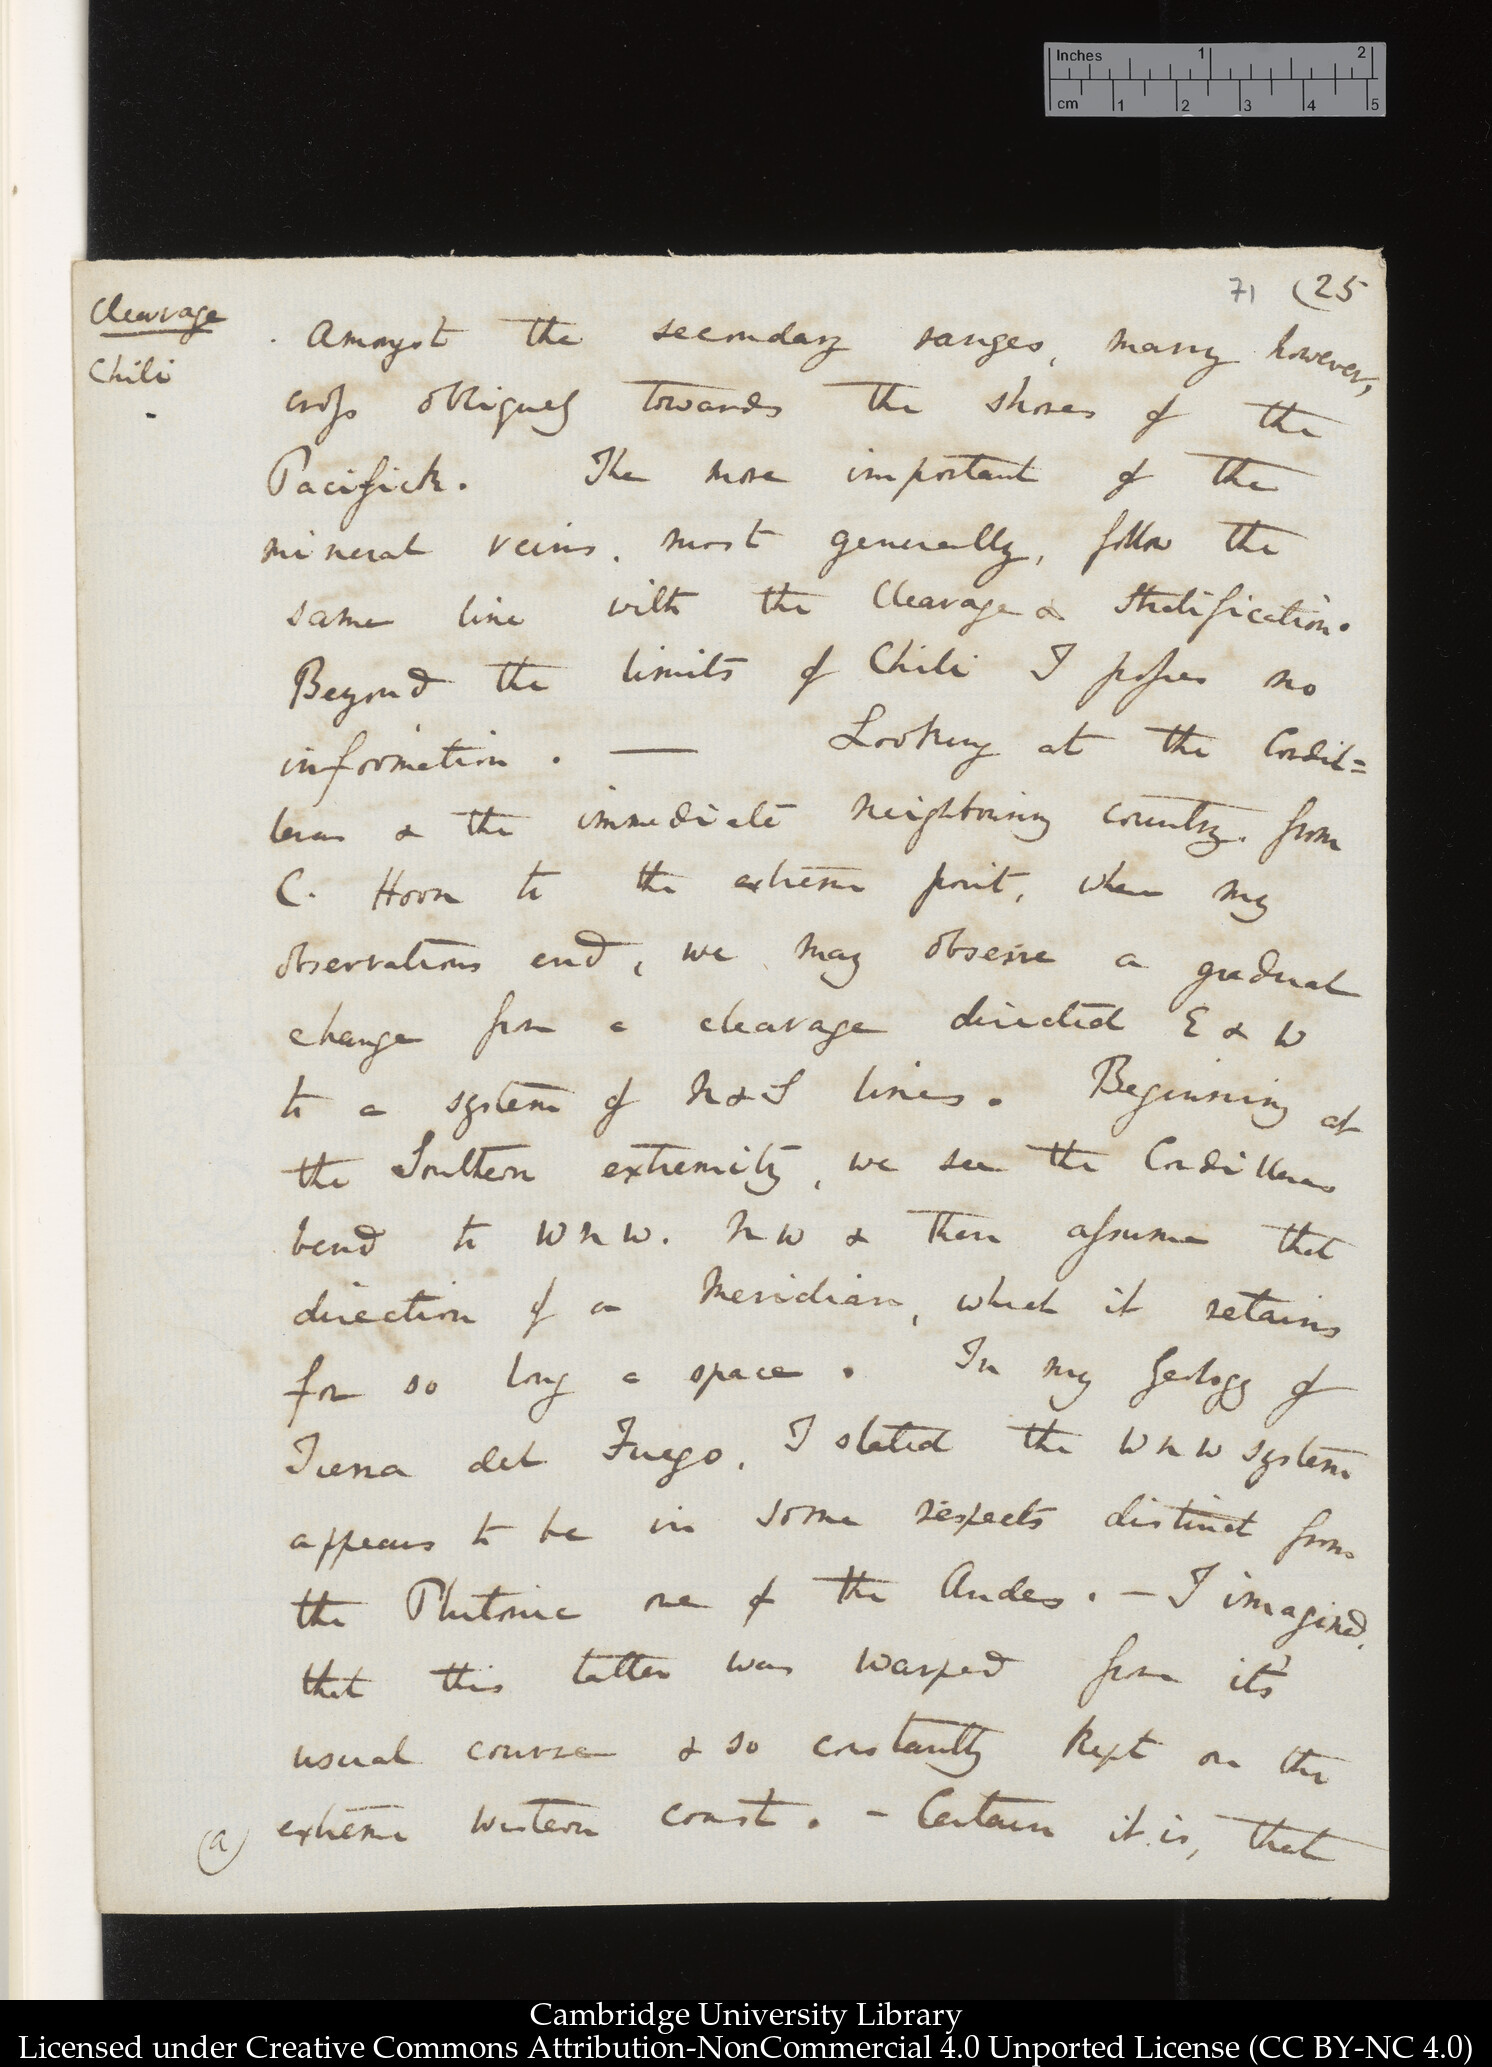 Inches 1 2
cm 1 2 3 4 5
71 (25
Cleavage
Chili
Amongst the secondary ranges, many however,
cross obliquely towards the shores of the
Pacifick. The more important of the
mineral veins, most generally, follow the
same line with the Cleavage & Stratification.
Beyond the limits of Chili I possess no
information. — Looking at the Cordil=
leras & the immediate neighbouring country, from
C. Horn to the extreme point, where my
observations end, we may observe a gradual
change from a cleavage directed E & W
to a system of N & S lines. Beginning at
the Southern extremity, we see the Cordilleras
bend to WNW. NW & then assume that
direction of a Meridian, which it retains
for so long a space. In my Geology of
Tierra del Fuego, I stated the WNW system
appears to be in some respects distinct from
the Plutonic one of the Andes. — I imagined,
that this latter was warped from it's
usual course & so constantly kept on the
(a) extreme western coast. — Certain it is, that
Cambridge University Library
Licensed under Creative Commons Attribution-NonCommercial 4.0 Unported License (CC BY-NC 4.0)